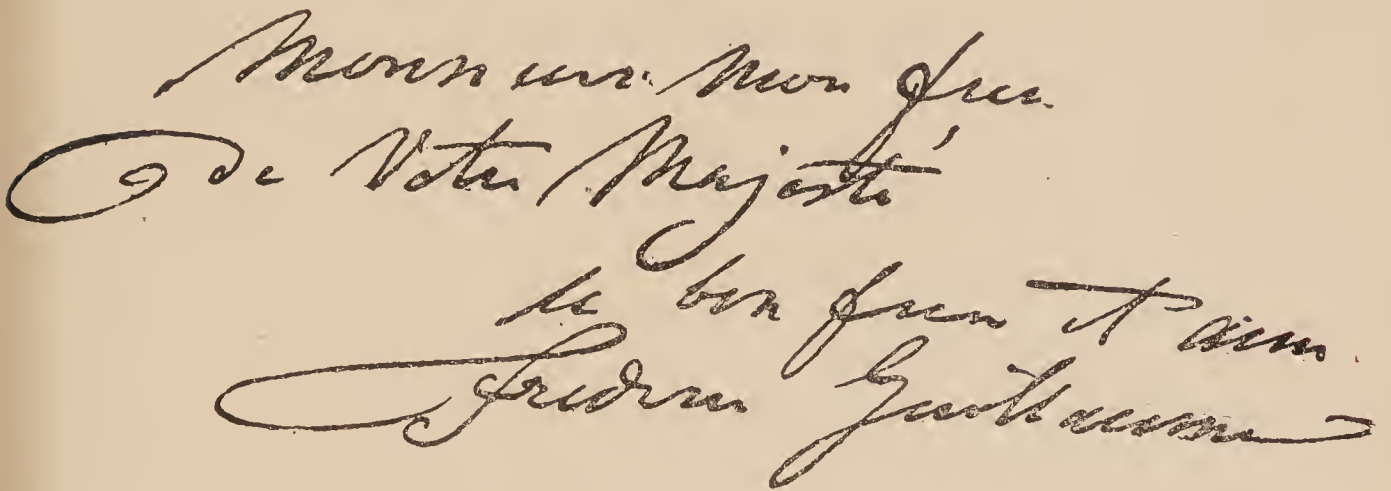 Monsieur mon frere
de Votre Majesté
le bon frere et ami
frederic Guillaume